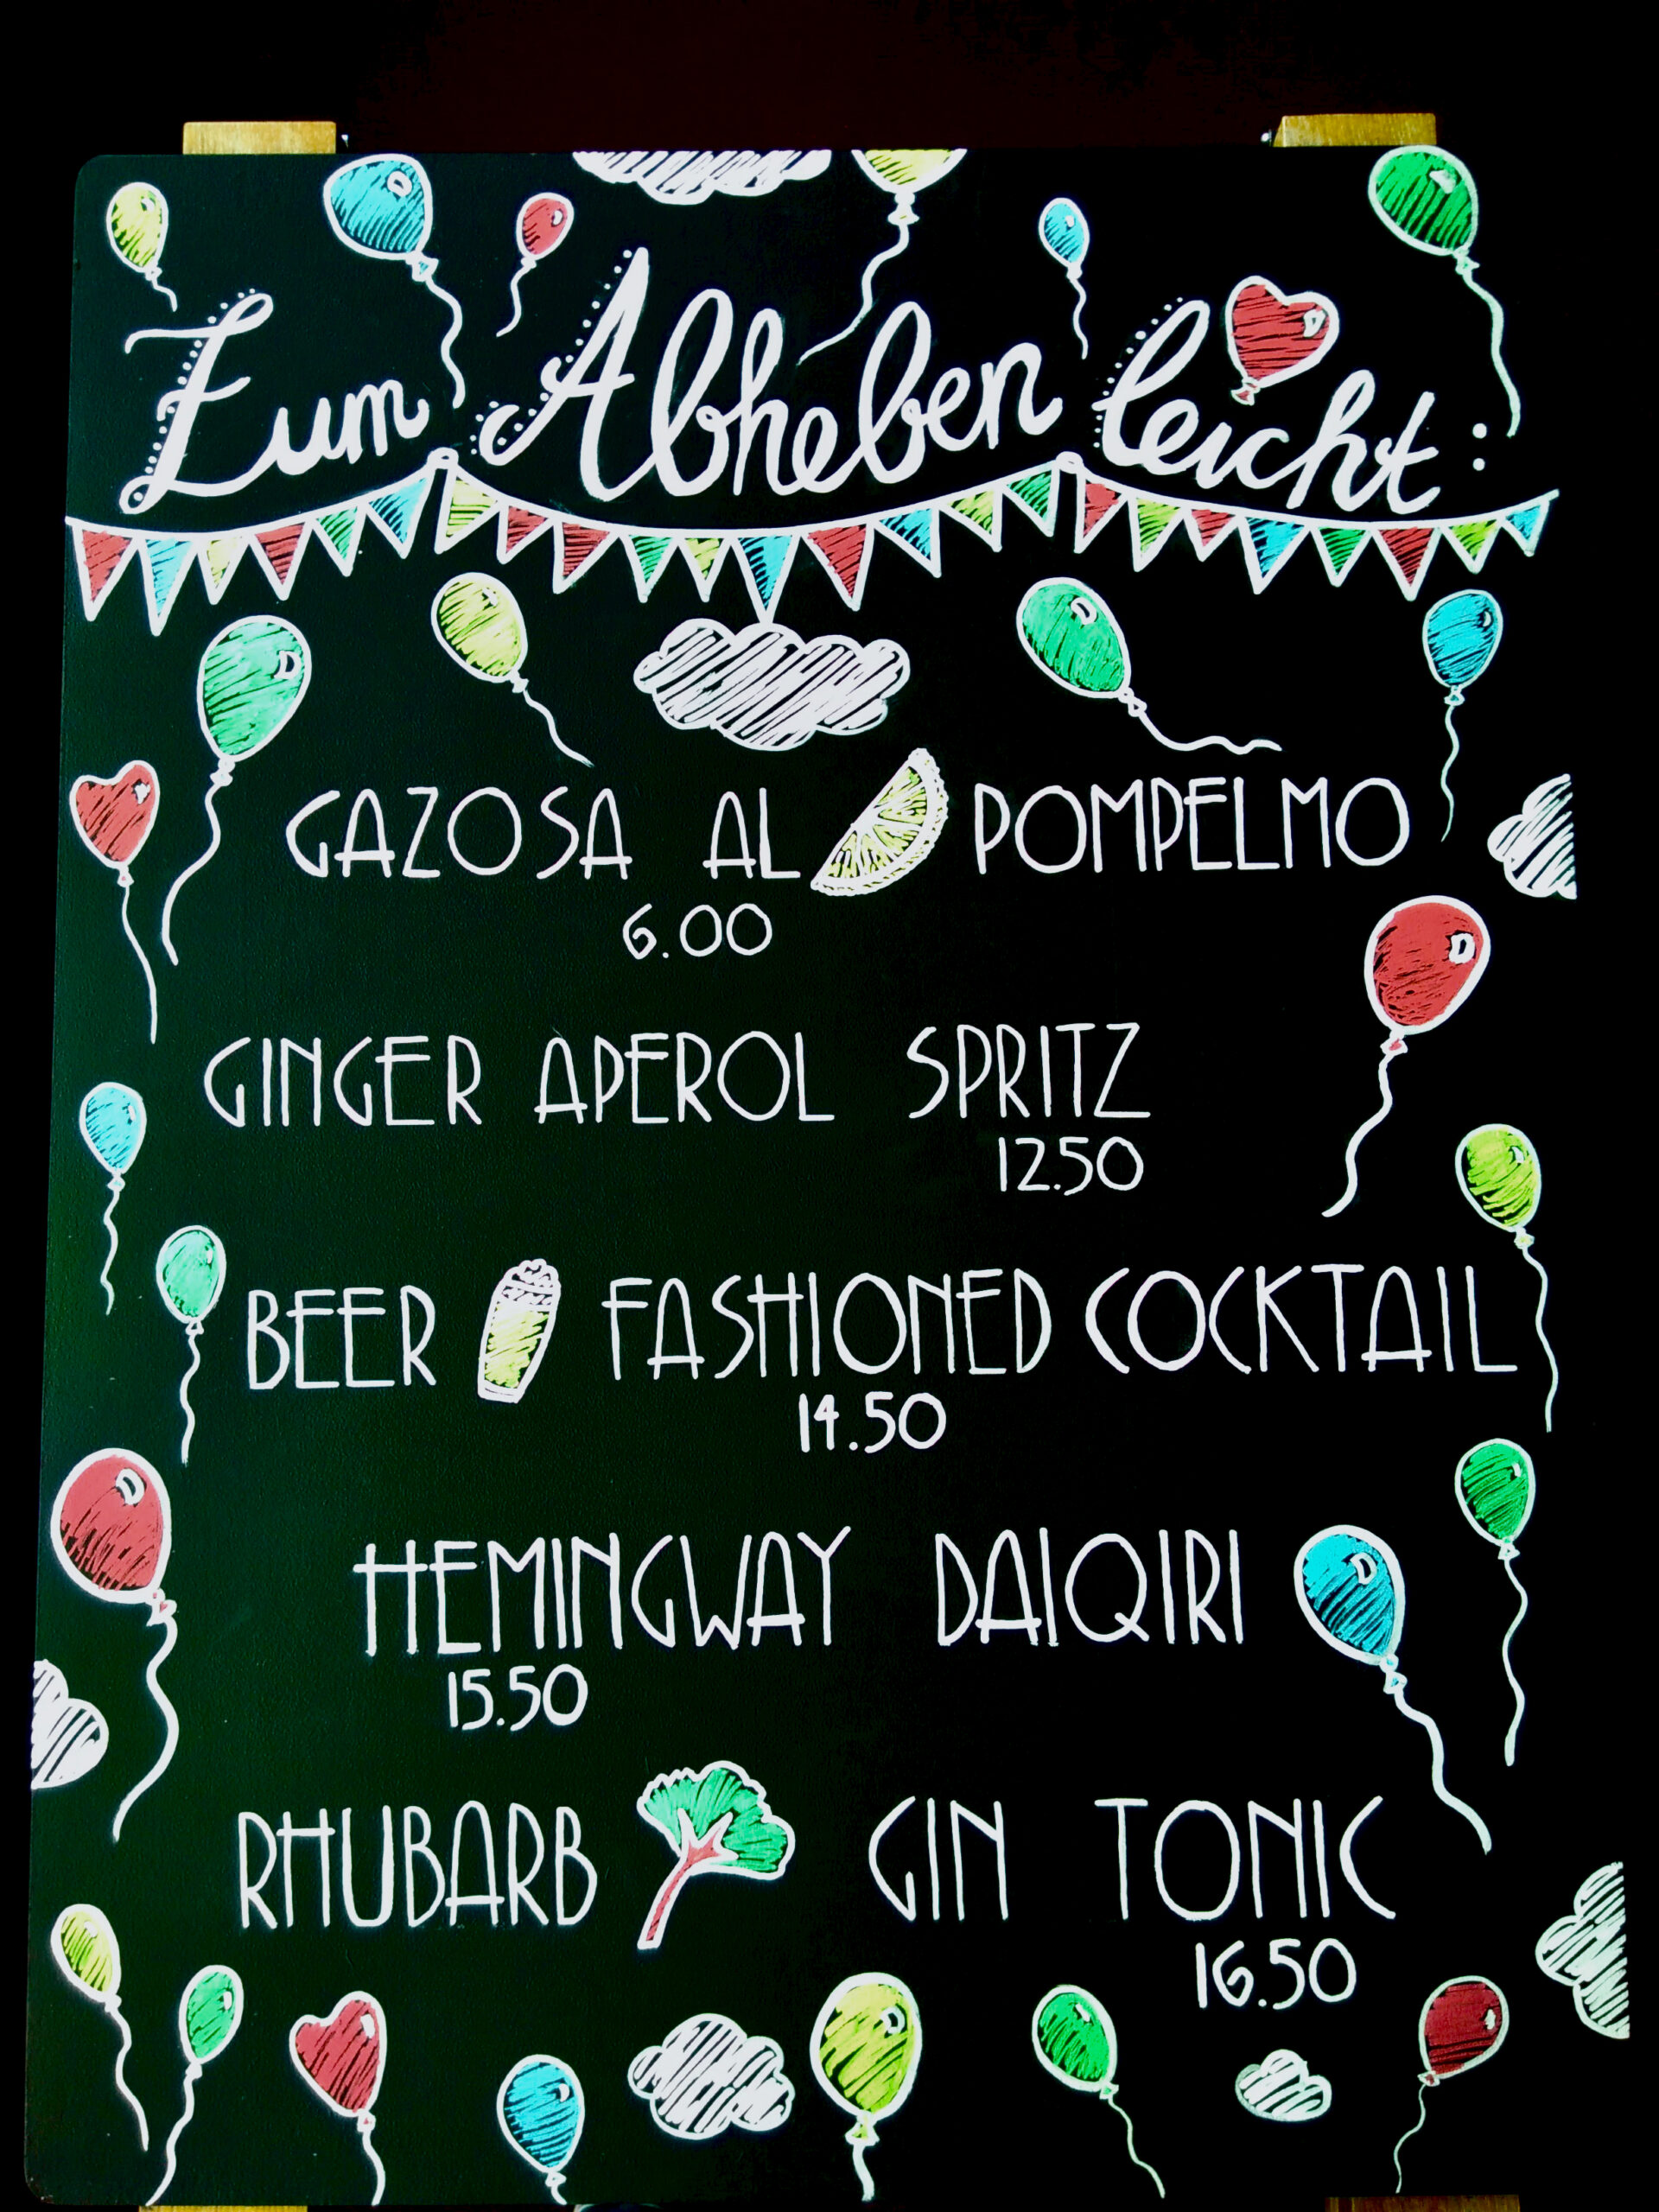 Zum Abheben leicht:
GAZOSA AL POMPELMO
6.00
GINGER APEROL SPRITZ
12.50
BEER FASHIONED COCKTAIL
14.50
HEMINGWAY DAIQIRI
15.50
RHUBARB GIN TONIC
16.50